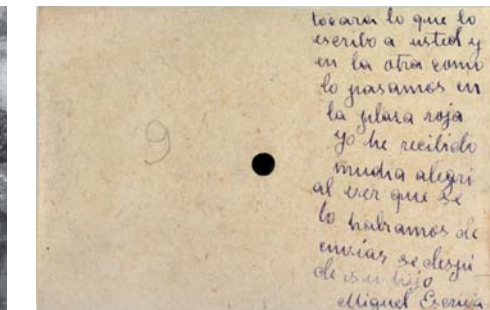 9
tocara lo que lo
escribo a usted y
en la otra como
lo pasamos en
la plasa roja
Yo he recibido
mucha alegri
al ver que se
lo habramos de
enviar se despi
de su hijo
Miguel Escriva